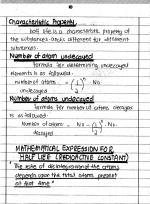 Characteristic Property.
Half life is a characteristic property of
the substances and is different for different
substances.
Number of atom undecayed
Formula for determining undecayed
elements is as follows.
number of atoms = (1/2)ⁿ No.
undecayed
Number of atoms undecayed
formula for number of atoms decayed
is as follows.
Number of atoms = No - (1/2)ⁿ No.
decayed
MATHEMATICAL EXPRESSION FOR
HALF LIFE (RADIOACTIVE CONSTANT)
"The rate of disintegration of the atoms
depends upon the total atoms present
at that time"